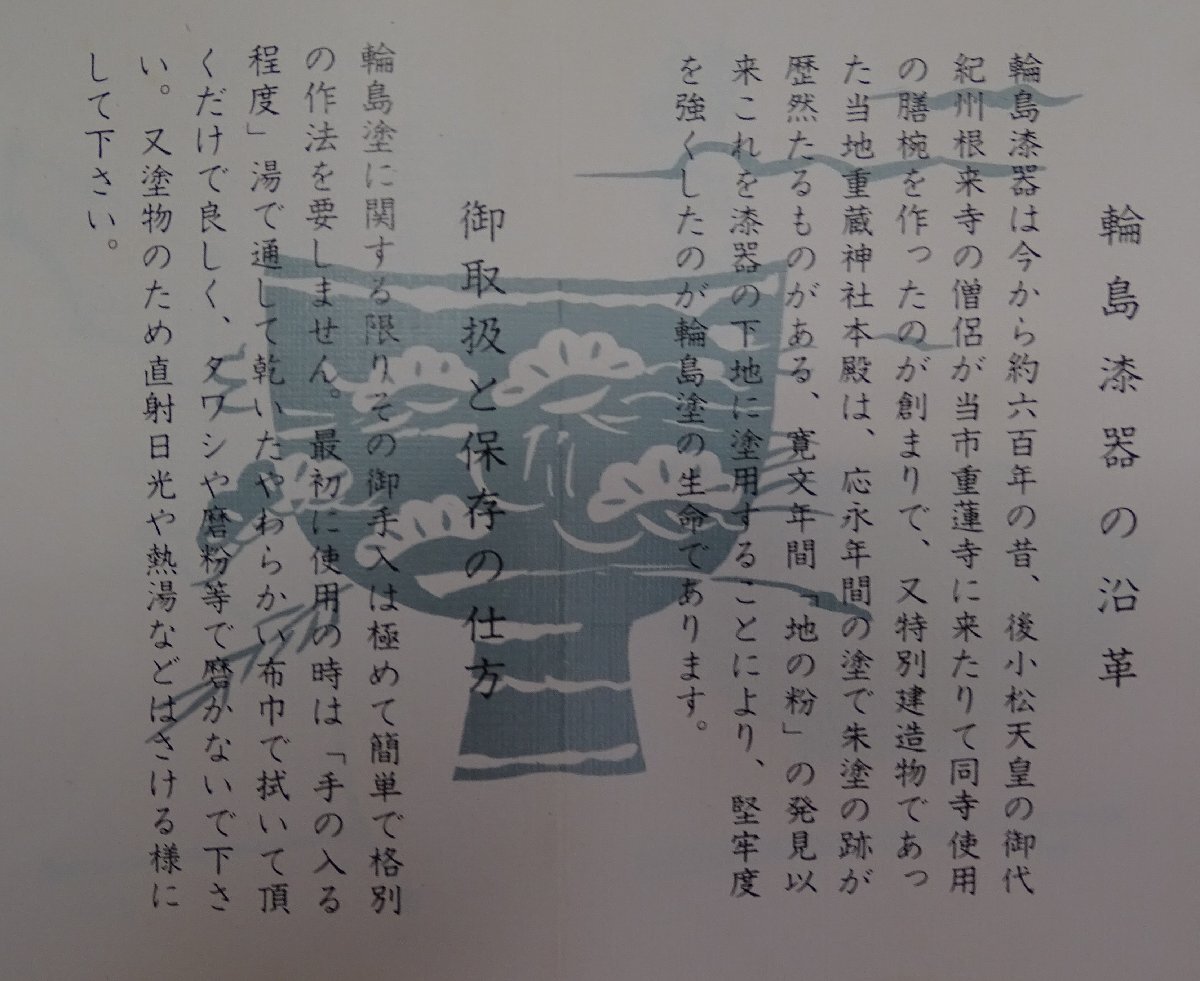 輪島漆器の沿革
輪島漆器は今から約六百年の昔、後小松天皇の御代
紀州根来寺の僧侶が当市重蓮寺に来たりて同寺使用
の膳椀を作ったのが創まりで、又特別建造物であっ
た当地重蔵神社本殿は、応永年間の塗で朱塗の跡が
歴然たるものがある、寛文年間「地の粉」の発見以
来これを漆器の下地に塗用することにより、堅牢度
を強くしたのが輪島塗の生命であります。
御取扱と保存の仕方
輪島塗に関する限りその御手入は極めて簡単で格別
の作法を要しません。最初に使用の時は「手の入る
程度」湯で通して乾いたやわらかい布巾で拭いて頂
くだけで良しく、タワシや磨粉等で磨かないで下さ
い。又塗物のため直射日光や熱湯などはさける様に
して下さい。